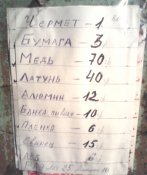 ЧЕРМЕТ - 1
БУМАГА - 3
МЕДЬ - 70
ЛАТУНЬ - 40
АЛЮМИН - 12
БАНКА ПИВН - 10
ПЛЕНКА - 6
СВИНЕЦ - 15